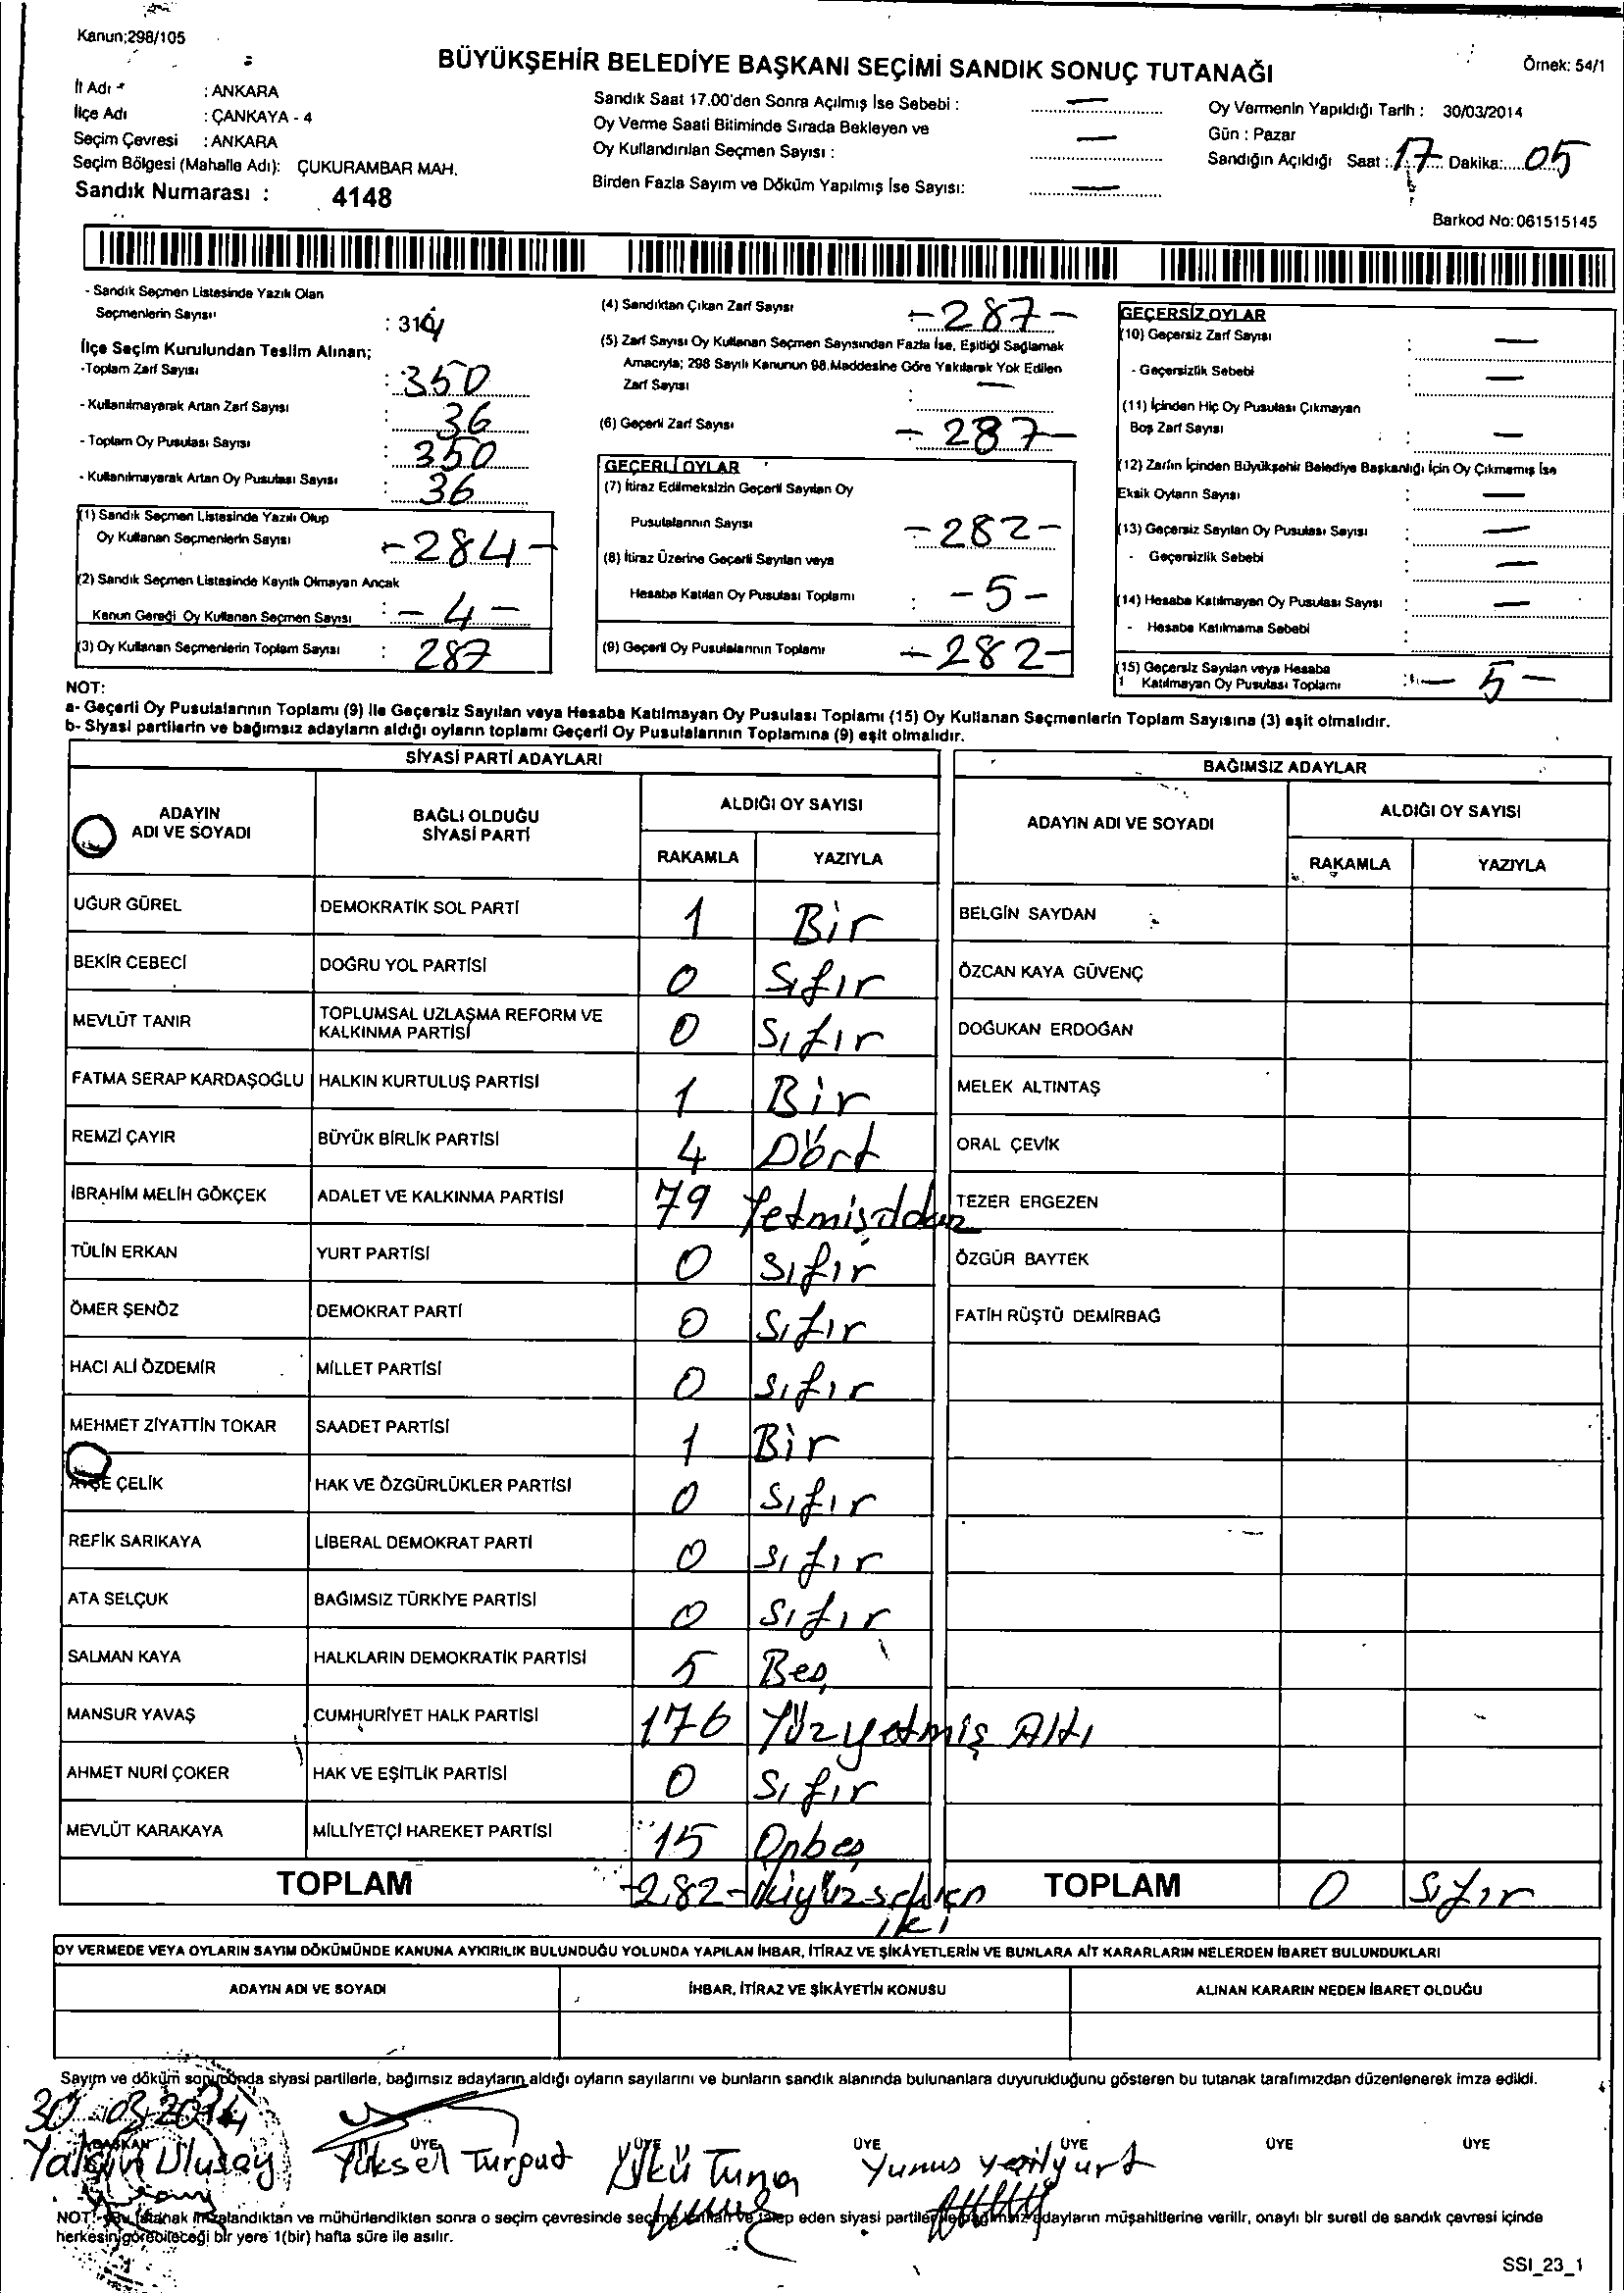 Kanun;298/105
BÜYÜKŞEHİR BELEDİYE BAŞKANI SEÇİMİ SANDIK SONUÇ TUTANAĞI
Örnek: 54/1
İl Adı : ANKARA
İlçe Adı : ÇANKAYA - 4
Seçim Çevresi : ANKARA
Seçim Bölgesi (Mahalle Adı): ÇUKURAMBAR MAH.
Sandık Numarası : 4148
Sandık Saat 17.00'den Sonra Açılmış İse Sebebi : —
Oy Verme Saati Bitiminde Sırada Bekleyen ve
Oy Kullandırılan Seçmen Sayısı : —
Birden Fazla Sayım ve Döküm Yapılmış İse Sayısı: —
Oy Vermenin Yapıldığı Tarih : 30/03/2014
Gün : Pazar
Sandığın Açıldığı Saat : 17 Dakika: 05
Barkod No: 061515145
- Sandık Seçmen Listesinde Yazılı Olan
Seçmenlerin Sayısı : 314
İlçe Seçim Kurulundan Teslim Alınan;
-Toplam Zarf Sayısı : 350
- Kullanılmayarak Artan Zarf Sayısı : 36
- Toplam Oy Pusulası Sayısı : 350
- Kullanılmayarak Artan Oy Pusulası Sayısı : 36
(1) Sandık Seçmen Listesinde Yazılı Olup
Oy Kullanan Seçmenlerin Sayısı -284-
(2) Sandık Seçmen Listesinde Kayıtlı Olmayan Ancak
Kanun Gereği Oy Kullanan Seçmen Sayısı : -4-
(3) Oy Kullanan Seçmenlerin Toplam Sayısı : 287
(4) Sandıktan Çıkan Zarf Sayısı -287-
(5) Zarf Sayısı Oy Kullanan Seçmen Sayısından Fazla İse, Eşitliği Sağlamak
Amacıyla; 298 Sayılı Kanunun 98.Maddesine Göre Yakılarak Yok Edilen
Zarf Sayısı : —
(6) Geçerli Zarf Sayısı -287-
GEÇERLİ OYLAR
(7) İtiraz Edilmeksizin Geçerli Sayılan Oy
Pusulalarının Sayısı -282-
(8) İtiraz Üzerine Geçerli Sayılan veya
Hesaba Katılan Oy Pusulası Toplamı : -5-
(9) Geçerli Oy Pusulalarının Toplamı -282-
GEÇERSİZ OYLAR
(10) Geçersiz Zarf Sayısı : —
- Geçersizlik Sebebi : —
(11) İçinden Hiç Oy Pusulası Çıkmayan
Boş Zarf Sayısı : —
(12) Zarfın İçinden Büyükşehir Belediye Başkanlığı İçin Oy Çıkmamış İse
Eksik Oyların Sayısı : —
(13) Geçersiz Sayılan Oy Pusulası Sayısı : —
- Geçersizlik Sebebi : —
(14) Hesaba Katılmayan Oy Pusulası Sayısı : —
- Hesaba Katılmama Sebebi :
(15) Geçersiz Sayılan veya Hesaba
Katılmayan Oy Pusulası Toplamı : - 5 -
NOT:
a- Geçerli Oy Pusulalarının Toplamı (9) ile Geçersiz Sayılan veya Hesaba Katılmayan Oy Pusulası Toplamı (15) Oy Kullanan Seçmenlerin Toplam Sayısına (3) eşit olmalıdır.
b- Siyasi partilerin ve bağımsız adayların aldığı oyların toplamı Geçerli Oy Pusulalarının Toplamına (9) eşit olmalıdır.
SİYASİ PARTİ ADAYLARI
ADAYIN ADI VE SOYADI
BAĞLI OLDUĞU SİYASİ PARTİ
ALDIĞI OY SAYISI
RAKAMLA YAZIYLA
UĞUR GÜREL DEMOKRATİK SOL PARTİ 1 Bir
BEKİR CEBECİ DOĞRU YOL PARTİSİ 0 Sıfır
MEVLÜT TANIR TOPLUMSAL UZLAŞMA REFORM VE KALKINMA PARTİSİ 0 Sıfır
FATMA SERAP KARDAŞOĞLU HALKIN KURTULUŞ PARTİSİ 1 Bir
REMZİ ÇAYIR BÜYÜK BİRLİK PARTİSİ 4 Dört
İBRAHİM MELİH GÖKÇEK ADALET VE KALKINMA PARTİSİ 79
TÜLİN ERKAN YURT PARTİSİ 0 Sıfır
ÖMER ŞENÖZ DEMOKRAT PARTİ 0 Sıfır
HACI ALİ ÖZDEMİR MİLLET PARTİSİ 0 Sıfır
MEHMET ZİYATTİN TOKAR SAADET PARTİSİ 1 Bir
AYŞE ÇELİK HAK VE ÖZGÜRLÜKLER PARTİSİ 0 Sıfır
REFİK SARIKAYA LİBERAL DEMOKRAT PARTİ 0 Sıfır
ATA SELÇUK BAĞIMSIZ TÜRKİYE PARTİSİ 0 Sıfır
SALMAN KAYA HALKLARIN DEMOKRATİK PARTİSİ 5 Beş
MANSUR YAVAŞ CUMHURİYET HALK PARTİSİ 176 Yüzyetmiş Altı
AHMET NURİ ÇOKER HAK VE EŞİTLİK PARTİSİ 0 Sıfır
MEVLÜT KARAKAYA MİLLİYETÇİ HAREKET PARTİSİ 15 Onbeş
TOPLAM -282- ikiyüzseksen iki
BAĞIMSIZ ADAYLAR
ADAYIN ADI VE SOYADI
ALDIĞI OY SAYISI
RAKAMLA YAZIYLA
BELGİN SAYDAN
ÖZCAN KAYA GÜVENÇ
DOĞUKAN ERDOĞAN
MELEK ALTINTAŞ
ORAL ÇEVİK
TEZER ERGEZEN
ÖZGÜR BAYTEK
FATİH RÜŞTÜ DEMİRBAĞ
TOPLAM 0 Sıfır
OY VERMEDE VEYA OYLARIN SAYIM DÖKÜMÜNDE KANUNA AYKIRILIK BULUNDUĞU YOLUNDA YAPILAN İHBAR, İTİRAZ VE ŞİKÂYETLERİN VE BUNLARA AİT KARARLARIN NELERDEN İBARET BULUNDUKLARI
ADAYIN ADI VE SOYADI İHBAR, İTİRAZ VE ŞİKÂYETİN KONUSU ALINAN KARARIN NEDEN İBARET OLDUĞU
Sayım ve döküm sonucunda siyasi partilerle, bağımsız adayların aldığı oyların sayılarını ve bunların sandık alanında bulunanlara duyurulduğunu gösteren bu tutanak tarafımızdan düzenlenerek imza edildi.
30 03 2014
BAŞKAN ÜYE ÜYE ÜYE ÜYE ÜYE ÜYE
Yalçın Ulusoy Yüksel Turgut Ülkü Tuna Yunus Yeşilyurt
NOT: - Bu tutanak imzalandıktan ve mühürlendikten sonra o seçim çevresinde seçime katılan ve talep eden siyasi partiler ve bağımsız adayların müşahitlerine verilir, onaylı bir sureti de sandık çevresi içinde
herkesin görebileceği bir yere 1(bir) hafta süre ile asılır.
SSI_23_1